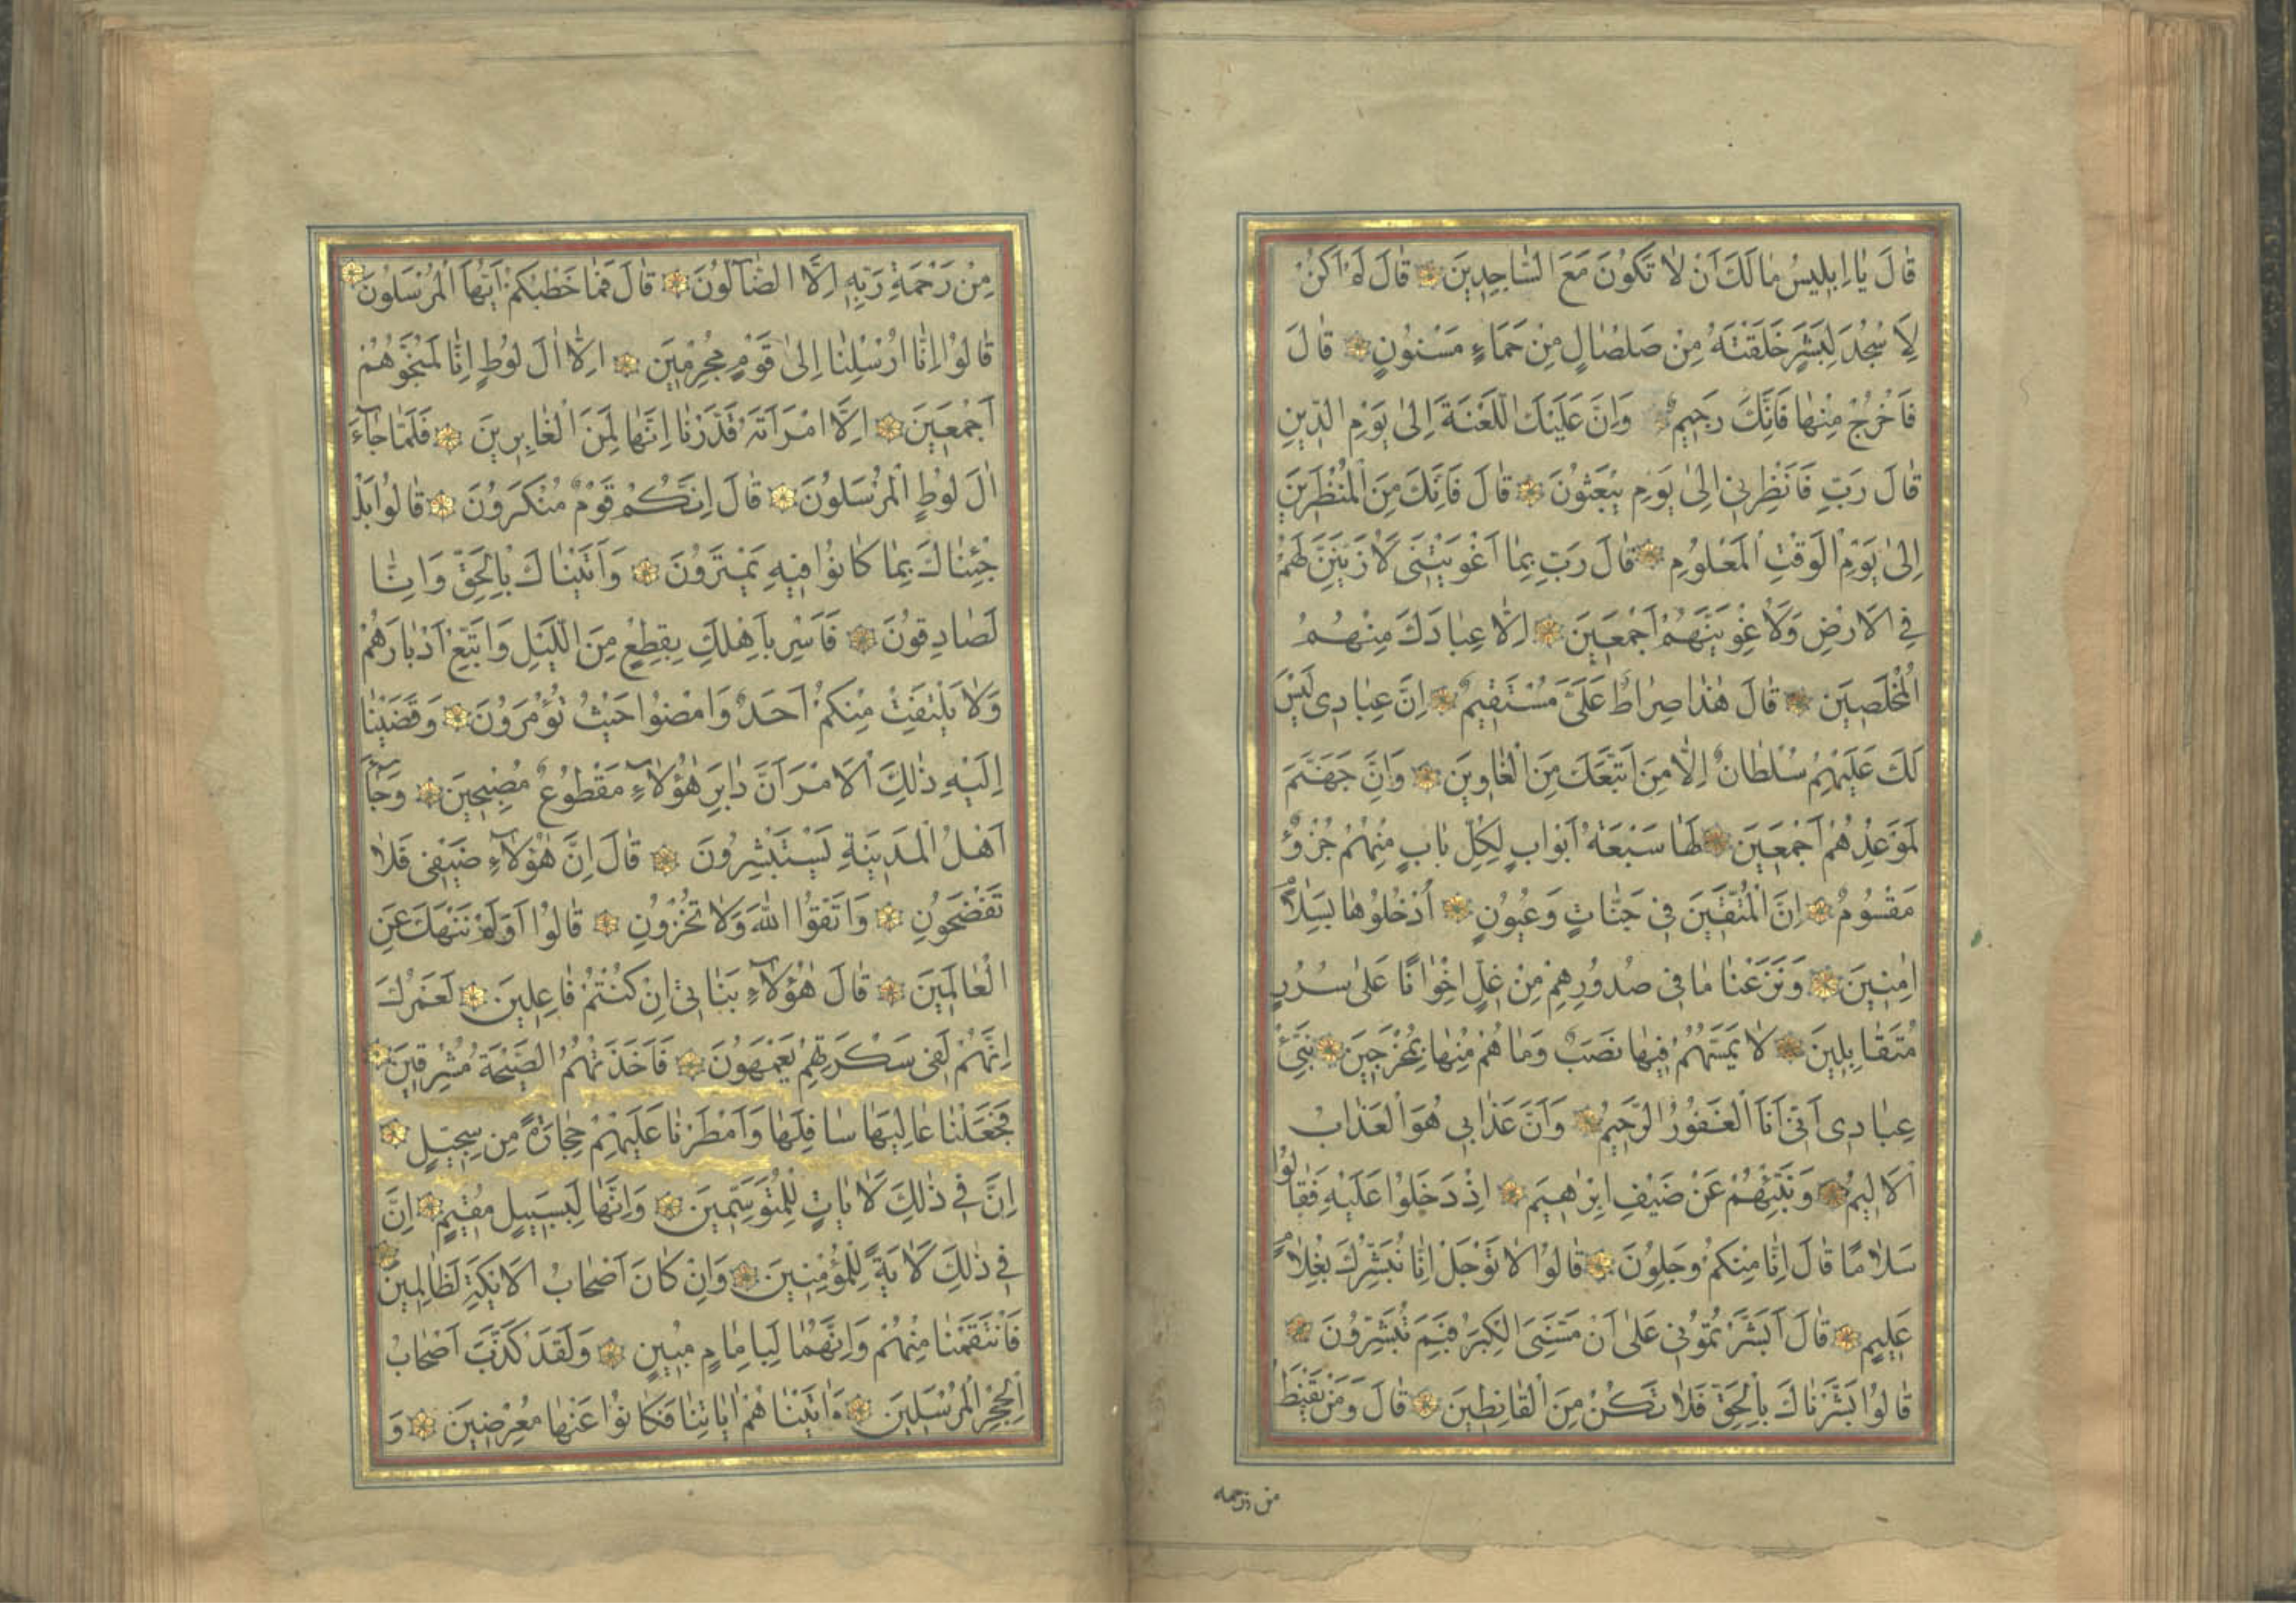 قَالَ يَا اِبْلِيسُ مَا لَكَ اَنْ لَا تَكُونَ مَعَ السَّاجِدِينَ قَالَ لَمْ اَكُنْ
لِاَسْجُدَ لِبَشَرٍ خَلَقْتَهُ مِنْ صَلْصَالٍ مِنْ حَمَاءٍ مَسْنُونٍ قَالَ
فَاخْرُجْ مِنْهَا فَاِنَّكَ رَجِيمٌ وَاِنَّ عَلَيْكَ اللَّعْنَةَ اِلَى يَوْمِ الدِّينِ
قَالَ رَبِّ فَاَنْظِرْنِي اِلَى يَوْمِ يُبْعَثُونَ قَالَ فَاِنَّكَ مِنَ الْمُنْظَرِينَ
اِلَى يَوْمِ الْوَقْتِ الْمَعْلُومِ قَالَ رَبِّ بِمَا اَغْوَيْتَنِي لَاُزَيِّنَنَّ لَهُمْ
فِي الْاَرْضِ وَلَاُغْوِيَنَّهُمْ اَجْمَعِينَ اِلَّا عِبَادَكَ مِنْهُمُ
الْمُخْلَصِينَ قَالَ هٰذَا صِرَاطٌ عَلَيَّ مُسْتَقِيمٌ اِنَّ عِبَادِي لَيْسَ
لَكَ عَلَيْهِمْ سُلْطَانٌ اِلَّا مَنِ اتَّبَعَكَ مِنَ الْغَاوِينَ وَاِنَّ جَهَنَّمَ
لَمَوْعِدُهُمْ اَجْمَعِينَ لَهَا سَبْعَةُ اَبْوَابٍ لِكُلِّ بَابٍ مِنْهُمْ جُزْؤٌ
مَقْسُومٌ اِنَّ الْمُتَّقِينَ فِي جَنَّاتٍ وَعُيُونٍ اُدْخُلُوهَا بِسَلَامٍ
اٰمِنِينَ وَنَزَعْنَا مَا فِي صُدُورِهِمْ مِنْ غِلٍّ اِخْوَانًا عَلَى سُرُرٍ
مُتَقَابِلِينَ لَا يَمَسُّهُمْ فِيهَا نَصَبٌ وَمَا هُمْ مِنْهَا بِمُخْرَجِينَ نَبِّئْ
عِبَادِي اَنِّي اَنَا الْغَفُورُ الرَّحِيمُ وَاَنَّ عَذَابِي هُوَ الْعَذَابُ
الْاَلِيمُ وَنَبِّئْهُمْ عَنْ ضَيْفِ اِبْرٰهِيمَ اِذْ دَخَلُوا عَلَيْهِ فَقَالُوا
سَلَامًا قَالَ اِنَّا مِنْكُمْ وَجِلُونَ قَالُوا لَا تَوْجَلْ اِنَّا نُبَشِّرُكَ بِغُلَامٍ
عَلِيمٍ قَالَ اَبَشَّرْتُمُونِي عَلَى اَنْ مَسَّنِيَ الْكِبَرُ فَبِمَ تُبَشِّرُونَ
قَالُوا بَشَّرْنَاكَ بِالْحَقِّ فَلَا تَكُنْ مِنَ الْقَانِطِينَ قَالَ وَمَنْ يَقْنَطُ
من رحمه
مِنْ رَحْمَةِ رَبِّهِ اِلَّا الضَّآلُّونَ قَالَ فَمَا خَطْبُكُمْ اَيُّهَا الْمُرْسَلُونَ
قَالُوا اِنَّا اُرْسِلْنَا اِلَى قَوْمٍ مُجْرِمِينَ اِلَّا اٰلَ لُوطٍ اِنَّا لَمُنَجُّوهُمْ
اَجْمَعِينَ اِلَّا امْرَاَتَهُ قَدَّرْنَا اِنَّهَا لَمِنَ الْغَابِرِينَ فَلَمَّا جَآءَ
اٰلَ لُوطٍ الْمُرْسَلُونَ قَالَ اِنَّكُمْ قَوْمٌ مُنْكَرُونَ قَالُوا بَلْ
جِئْنَاكَ بِمَا كَانُوا فِيهِ يَمْتَرُونَ وَاَتَيْنَاكَ بِالْحَقِّ وَاِنَّا
لَصَادِقُونَ فَاَسْرِ بِاَهْلِكَ بِقِطْعٍ مِنَ اللَّيْلِ وَاتَّبِعْ اَدْبَارَهُمْ
وَلَا يَلْتَفِتْ مِنْكُمْ اَحَدٌ وَامْضُوا حَيْثُ تُؤْمَرُونَ وَقَضَيْنَا
اِلَيْهِ ذٰلِكَ الْاَمْرَ اَنَّ دَابِرَ هٰؤُلَآءِ مَقْطُوعٌ مُصْبِحِينَ وَجَآءَ
اَهْلُ الْمَدِينَةِ يَسْتَبْشِرُونَ قَالَ اِنَّ هٰؤُلَآءِ ضَيْفِي فَلَا
تَفْضَحُونِ وَاتَّقُوا اللّٰهَ وَلَا تُخْزُونِ قَالُوا اَوَلَمْ نَنْهَكَ عَنِ
الْعَالَمِينَ قَالَ هٰؤُلَآءِ بَنَاتِي اِنْ كُنْتُمْ فَاعِلِينَ لَعَمْرُكَ
اِنَّهُمْ لَفِي سَكْرَتِهِمْ يَعْمَهُونَ فَاَخَذَتْهُمُ الصَّيْحَةُ مُشْرِقِينَ
فَجَعَلْنَا عَالِيَهَا سَافِلَهَا وَاَمْطَرْنَا عَلَيْهِمْ حِجَارَةً مِنْ سِجِّيلٍ
اِنَّ فِي ذٰلِكَ لَاٰيَاتٍ لِلْمُتَوَسِّمِينَ وَاِنَّهَا لَبِسَبِيلٍ مُقِيمٍ اِنَّ
فِي ذٰلِكَ لَاٰيَةً لِلْمُؤْمِنِينَ وَاِنْ كَانَ اَصْحَابُ الْاَيْكَةِ لَظَالِمِينَ
فَانْتَقَمْنَا مِنْهُمْ وَاِنَّهُمَا لَبِاِمَامٍ مُبِينٍ وَلَقَدْ كَذَّبَ اَصْحَابُ
الْحِجْرِ الْمُرْسَلِينَ وَاٰتَيْنَاهُمْ اٰيَاتِنَا فَكَانُوا عَنْهَا مُعْرِضِينَ وَ